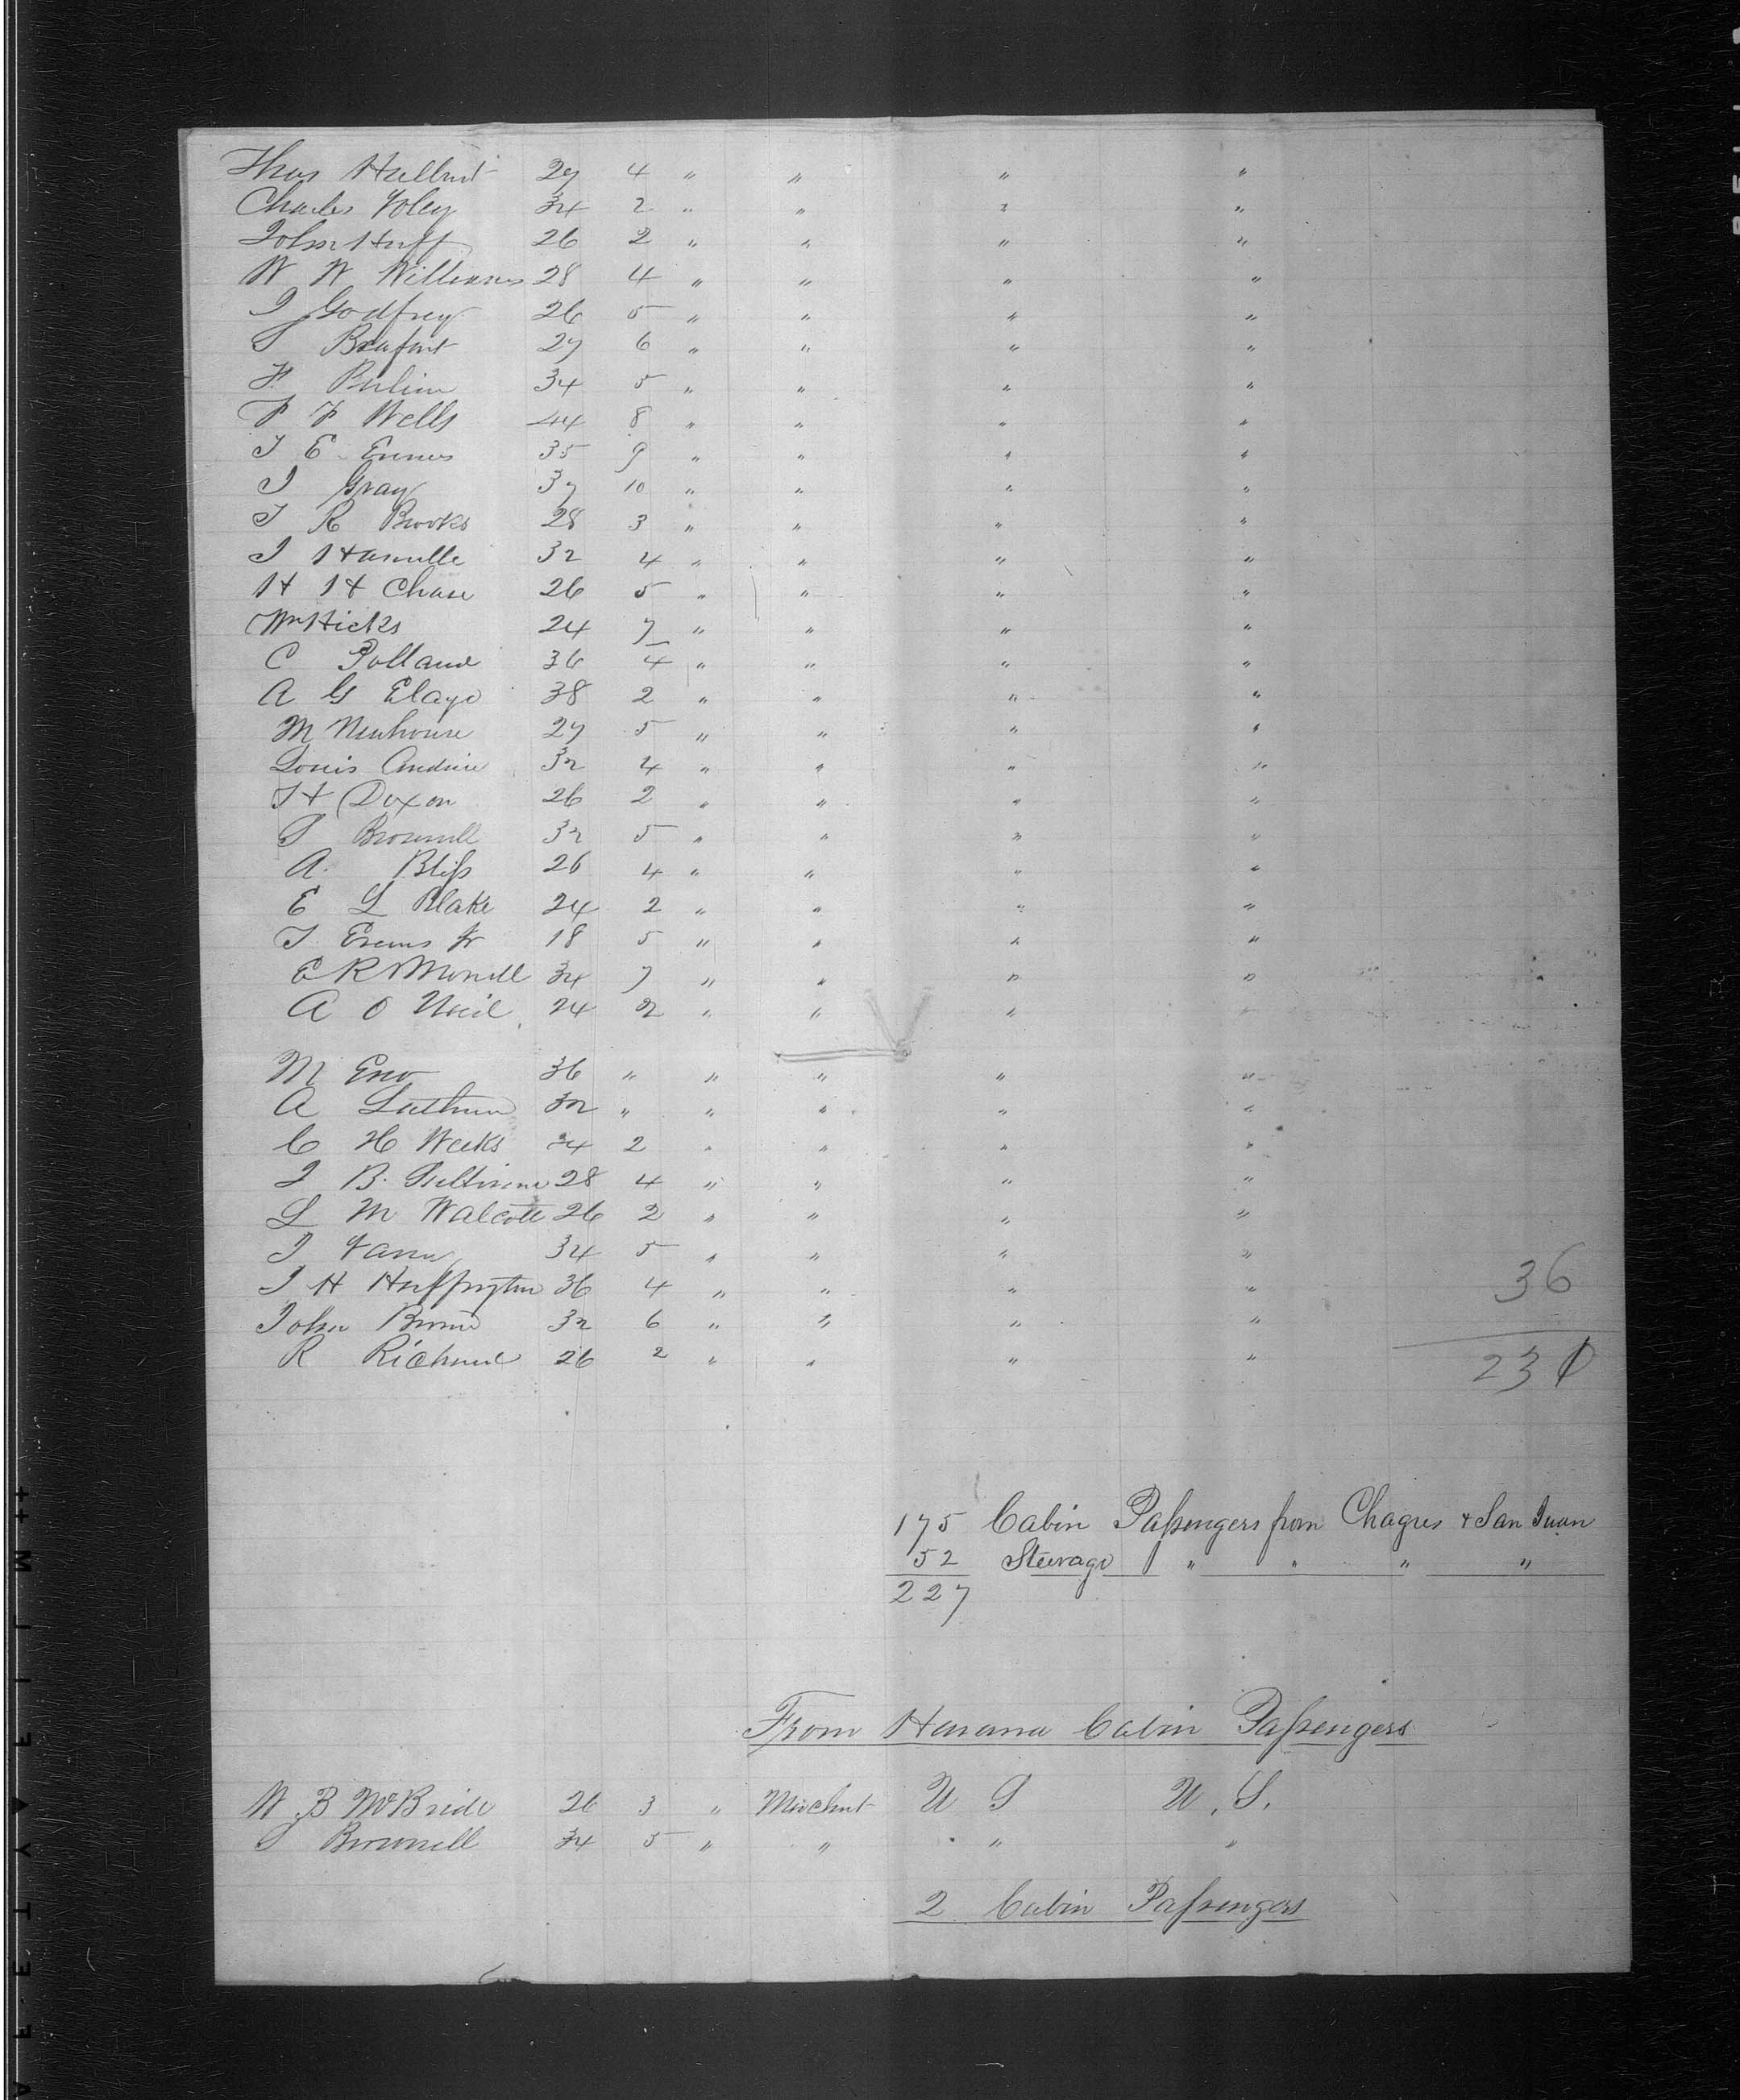 Thos Hulbut 27 4 " " " "
Charles Foley 34 2 " " " "
John Huff 26 2 " " " "
W W Williams 28 4 " " " "
J Godfrey 26 5 " " " "
S 27 6 " " " "
H. 34 5 " " " "
F F Wells 44 8 " " " "
J E 35 9 " " " "
J Gray 37 10 " " " "
J R Brooks 28 3 " " " "
J 32 4 " " " "
H H Chase 26 5 " " " "
Wm Hicks 24 7 " " " "
C 36 4 " " " "
A G Elayo 38 2 " " " "
M Newhouse 27 5 " " " "
Louis 32 4 " " " "
Doxon 26 2 " " " "
S Brownell 32 5 " " " "
A. Bliss 26 4 " " " "
E L Blake 24 2 " " " "
J Evens Jr 18 5 " " " "
E R Morrell 34 7 " " " "
A O Neil 24 2 " " " "
M Eno 36 " " " " "
A 32 " " " " "
C H Weeks 24 2 " " " "
J B. 28 4 " " " "
L M Walcott 26 2 " " " "
J 34 5 " " " "
J H Huffington 36 4 " " " " 36
John 32 6 " " " "
R 26 2 " " " " 231
175 Cabin Passengers from Chagres & San Juan
52 Steerage " " " "
227
From Havana Cabin Passengers
W B McBride 26 3 " Merchant U S U. S.
S Brownell 34 5 " " " "
2 Cabin Passengers